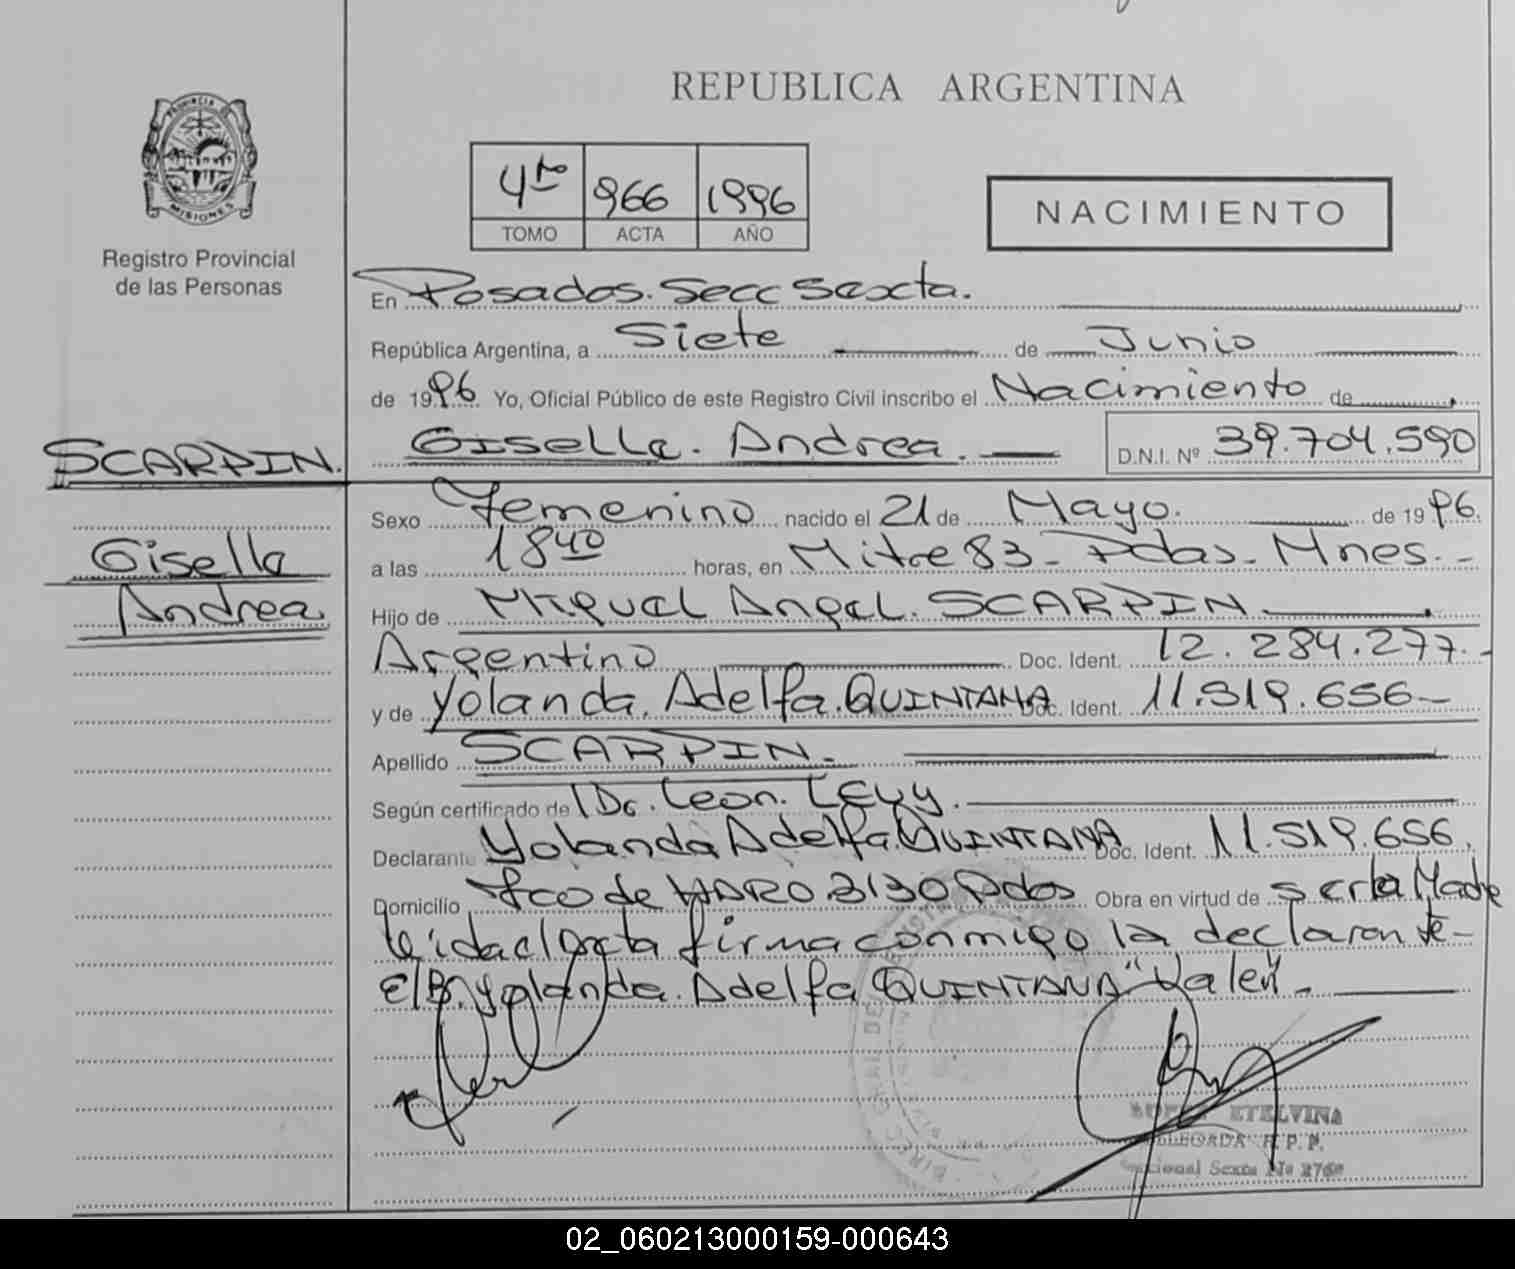 REPUBLICA ARGENTINA
PROVINCIA DE
MISIONES
Registro Provincial
de las Personas
4to 966 1996
TOMO ACTA AÑO
NACIMIENTO
En Posadas. Secc Sexta.
República Argentina, a Siete de Junio
de 1996 Yo, Oficial Público de este Registro Civil inscribo el Nacimiento de
SCARPIN.
Gisella. Andrea. D.N.I. Nº 39.704.590
Gisella
Andrea
Sexo Femenino nacido el 21 de Mayo. de 1996.
a las 18 40 horas, en Mitre 83 - Pdas - Mnes. -
Hijo de Miguel Angel. SCARPIN.
Argentino Doc. Ident. 12.284.277.-
y de Yolanda. Adelfa. QUINTANA Doc. Ident. 11.519.656-
Apellido SCARPIN.
Según certificado de Dr. Leon. Levy.
Declarante Yolanda Adelfa. QUINTANA Doc. Ident. 11.519.656.
Domicilio Fco de HARO 3130 Pdas Obra en virtud de ser la Madre
leida el acta firma conmigo la declarante-
Yolanda. Adelfa QUINTANA "Valen".
ETELVINA
R. P. P.
Seccional Sexta No
02_060213000159-000643